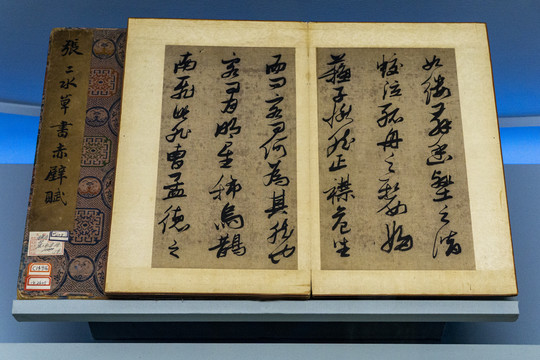 張二水草書赤壁賦
如縷舞幽壑之潛
蛟泣孤舟之嫠婦
蘇子愀然正襟危坐
而問客曰何為其然也
客曰月明星稀烏鵲
南飛此非曹孟德之